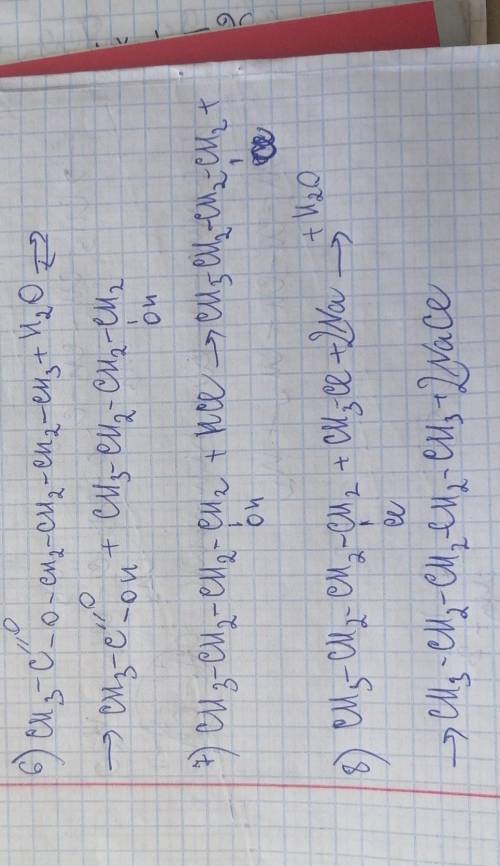 6) CH3-C//O-O-CH2-CH2-CH2-CH3 + H2O ⇄
→ CH3-C//O-OH + CH3-CH2-CH2-CH2
OH
7) CH3-CH2-CH2-CH2 + HCl → CH3-CH2-CH2-CH2 +
OH
+ H2O
8) CH3-CH2-CH2-CH2 + CH3-Cl + 2Na →
Cl
→ CH3-CH2-CH2-CH2-CH3 + 2NaCl